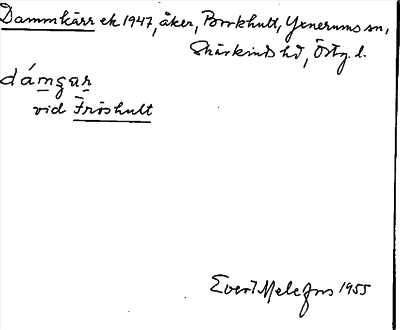 Dammkärr ek 1947, åker, Borkhult, Yxnerums sn,
Skärkinds hd, Östg. l.
dámgar
vid Fröshult
Evert Melefors 1955